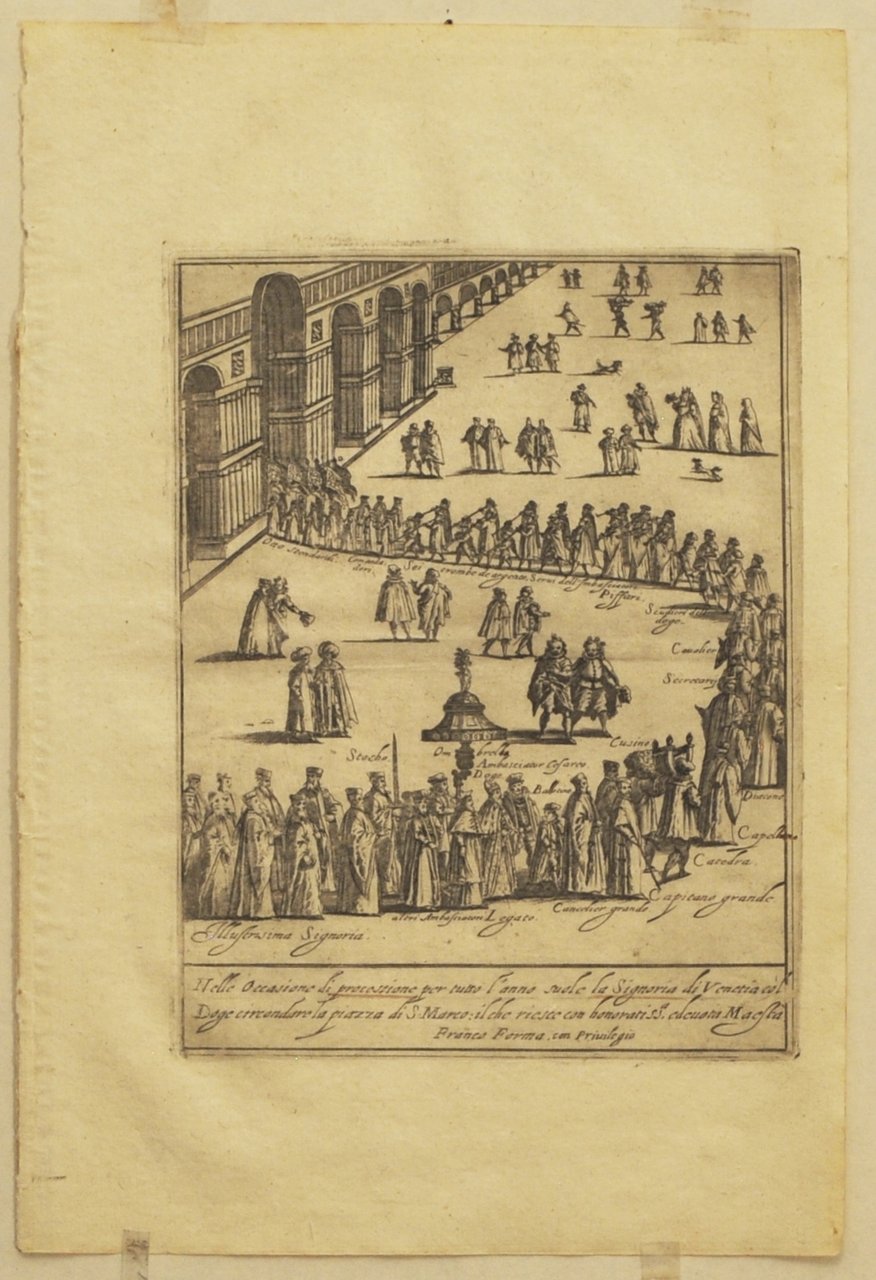 Otto Stendardi.
Comanda
dori.
Sei trombe de argento.
Servi dell'Ambasciatori
Piffari.
Scudieri del
doge.
Cavalier
Secretarij
Cusino
Stocho.
Ombrella
Ambasciator Cesareo
Doge
Balotino
Diacono
Capellano
Catedra.
Capitano grande
Cancelier grande
Legato.
altri Ambasciatori
Illustrissima Signoria.
Nelle Occasione di processione per tutto l'anno suole la Signoria di Venetia col
Doge circondare la piazza di S. Marco; il che riesce con honoratiss.ª e devota Maestà
Franco Forma, con Privilegio